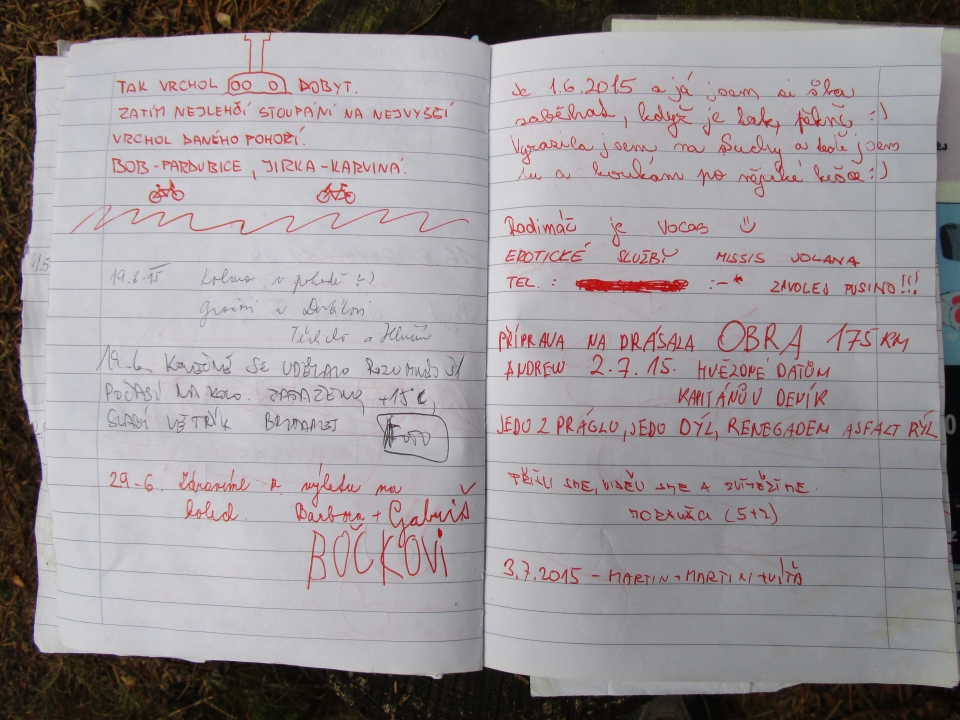 TAK VRCHOL DOBYT.
ZATÍM NEJLEHČÍ STOUPÁNÍ NA NEJVYŠŠÍ
VRCHOL DANÉHO POHOŘÍ.
BOB-PARDUBICE, JIRKA-KARVINÁ.
19.6.15 Kolmo v pohodě :-)
19.6. SE UDĚLALO
POČASÍ NA KOLO. ZATAŽENO, +15°C,
SLABÍ VĚTŘÍK
FOTO
29.6. Zdravíme z výletu na
kolech. Barbora + Gabuš
BOČKOVI
Je 1.6.2015 a já jsem si šla
zaběhat, když je tak pěkně :)
Vyrazila jsem na Suchý a teď jsem
tu a koukám po nějaké :)
Radimáč je Vocas
EROTICKÉ SLUŽBY MISSIS JOLANA
TEL. : :-* ZAVOLEJ PUSINO!!!
PŘÍPRAVA NA DRÁSALA OBRA 175 KM
ANDREW 2.7.15. HVĚZDNÉ DATUM
KAPITÁNŮV DENÍK
JEDU Z PRÁGLU, JEDU DÝL, RENEGADEM ASFALT RÝL
PŘIŠLI SME, VIDĚLI SME A ZVÍTĚZÍME.
(5+2)
3.7.2015 - MARTIN + MARTINI + VÍŤA